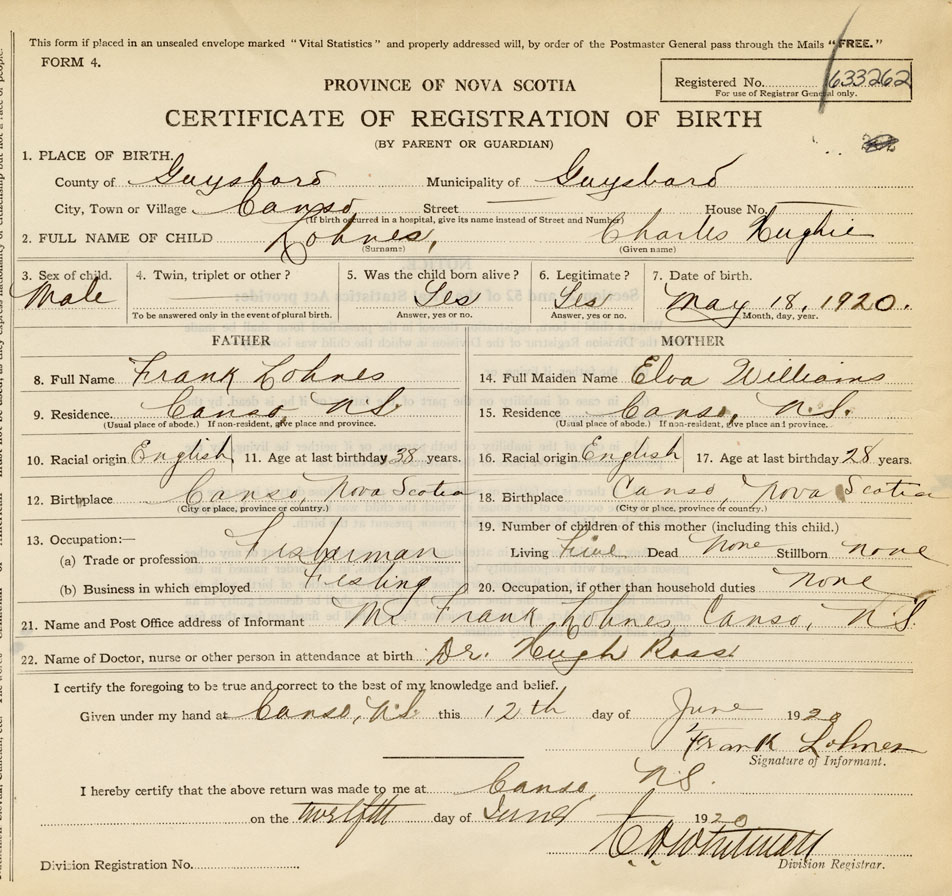 This form if placed in an unsealed envelope marked "Vital Statistics" and properly addressed will, by order of the Postmaster General pass through the Mails "FREE."
FORM 4.
Registered No. 633262
For use of Registrar General only.
PROVINCE OF NOVA SCOTIA
CERTIFICATE OF REGISTRATION OF BIRTH
(BY PARENT OR GUARDIAN)
1. PLACE OF BIRTH.
County of Guysboro Municipality of Guysboro
City, Town or Village Canso Street House No.
(If birth occurred in a hospital, give its name instead of Street and Number)
2. FULL NAME OF CHILD Lohnes, Charles Hughie
(Surname) (Given name)
3. Sex of child. 4. Twin, triplet or other? 5. Was the child born alive? 6. Legitimate? 7. Date of birth.
Male Yes Yes May 18, 1920.
To be answered only in the event of plural birth. Answer, yes or no. Answer, yes or no. Month, day, year.
FATHER MOTHER
8. Full Name Frank Lohnes 14. Full Maiden Name Elva Williams
9. Residence. Canso, N.S. 15. Residence Canso, N.S.
(Usual place of abode.) If non-resident, give place and province. (Usual place of abode.) If non-resident, give place and province.
10. Racial origin English 11. Age at last birthday 38 years. 16. Racial origin English 17. Age at last birthday 28 years.
12. Birthplace Canso, Nova Scotia 18. Birthplace Canso, Nova Scotia
(City or place, province or country.) (City or place, province or country.)
19. Number of children of this mother (including this child.)
13. Occupation:—
(a) Trade or profession Fisherman Living Five Dead None Stillborn none
(b) Business in which employed Fishing 20. Occupation, if other than household duties none
21. Name and Post Office address of Informant Mr. Frank Lohnes, Canso, N.S.
22. Name of Doctor, nurse or other person in attendance at birth Dr. Hugh Ross
I certify the foregoing to be true and correct to the best of my knowledge and belief.
Given under my hand at Canso, N.S. this 12th day of June 1920
Frank Lohnes
Signature of Informant.
I hereby certify that the above return was made to me at Canso N.S.
on the twelfth day of June 1920
Whitman
Division Registration No. Division Registrar.